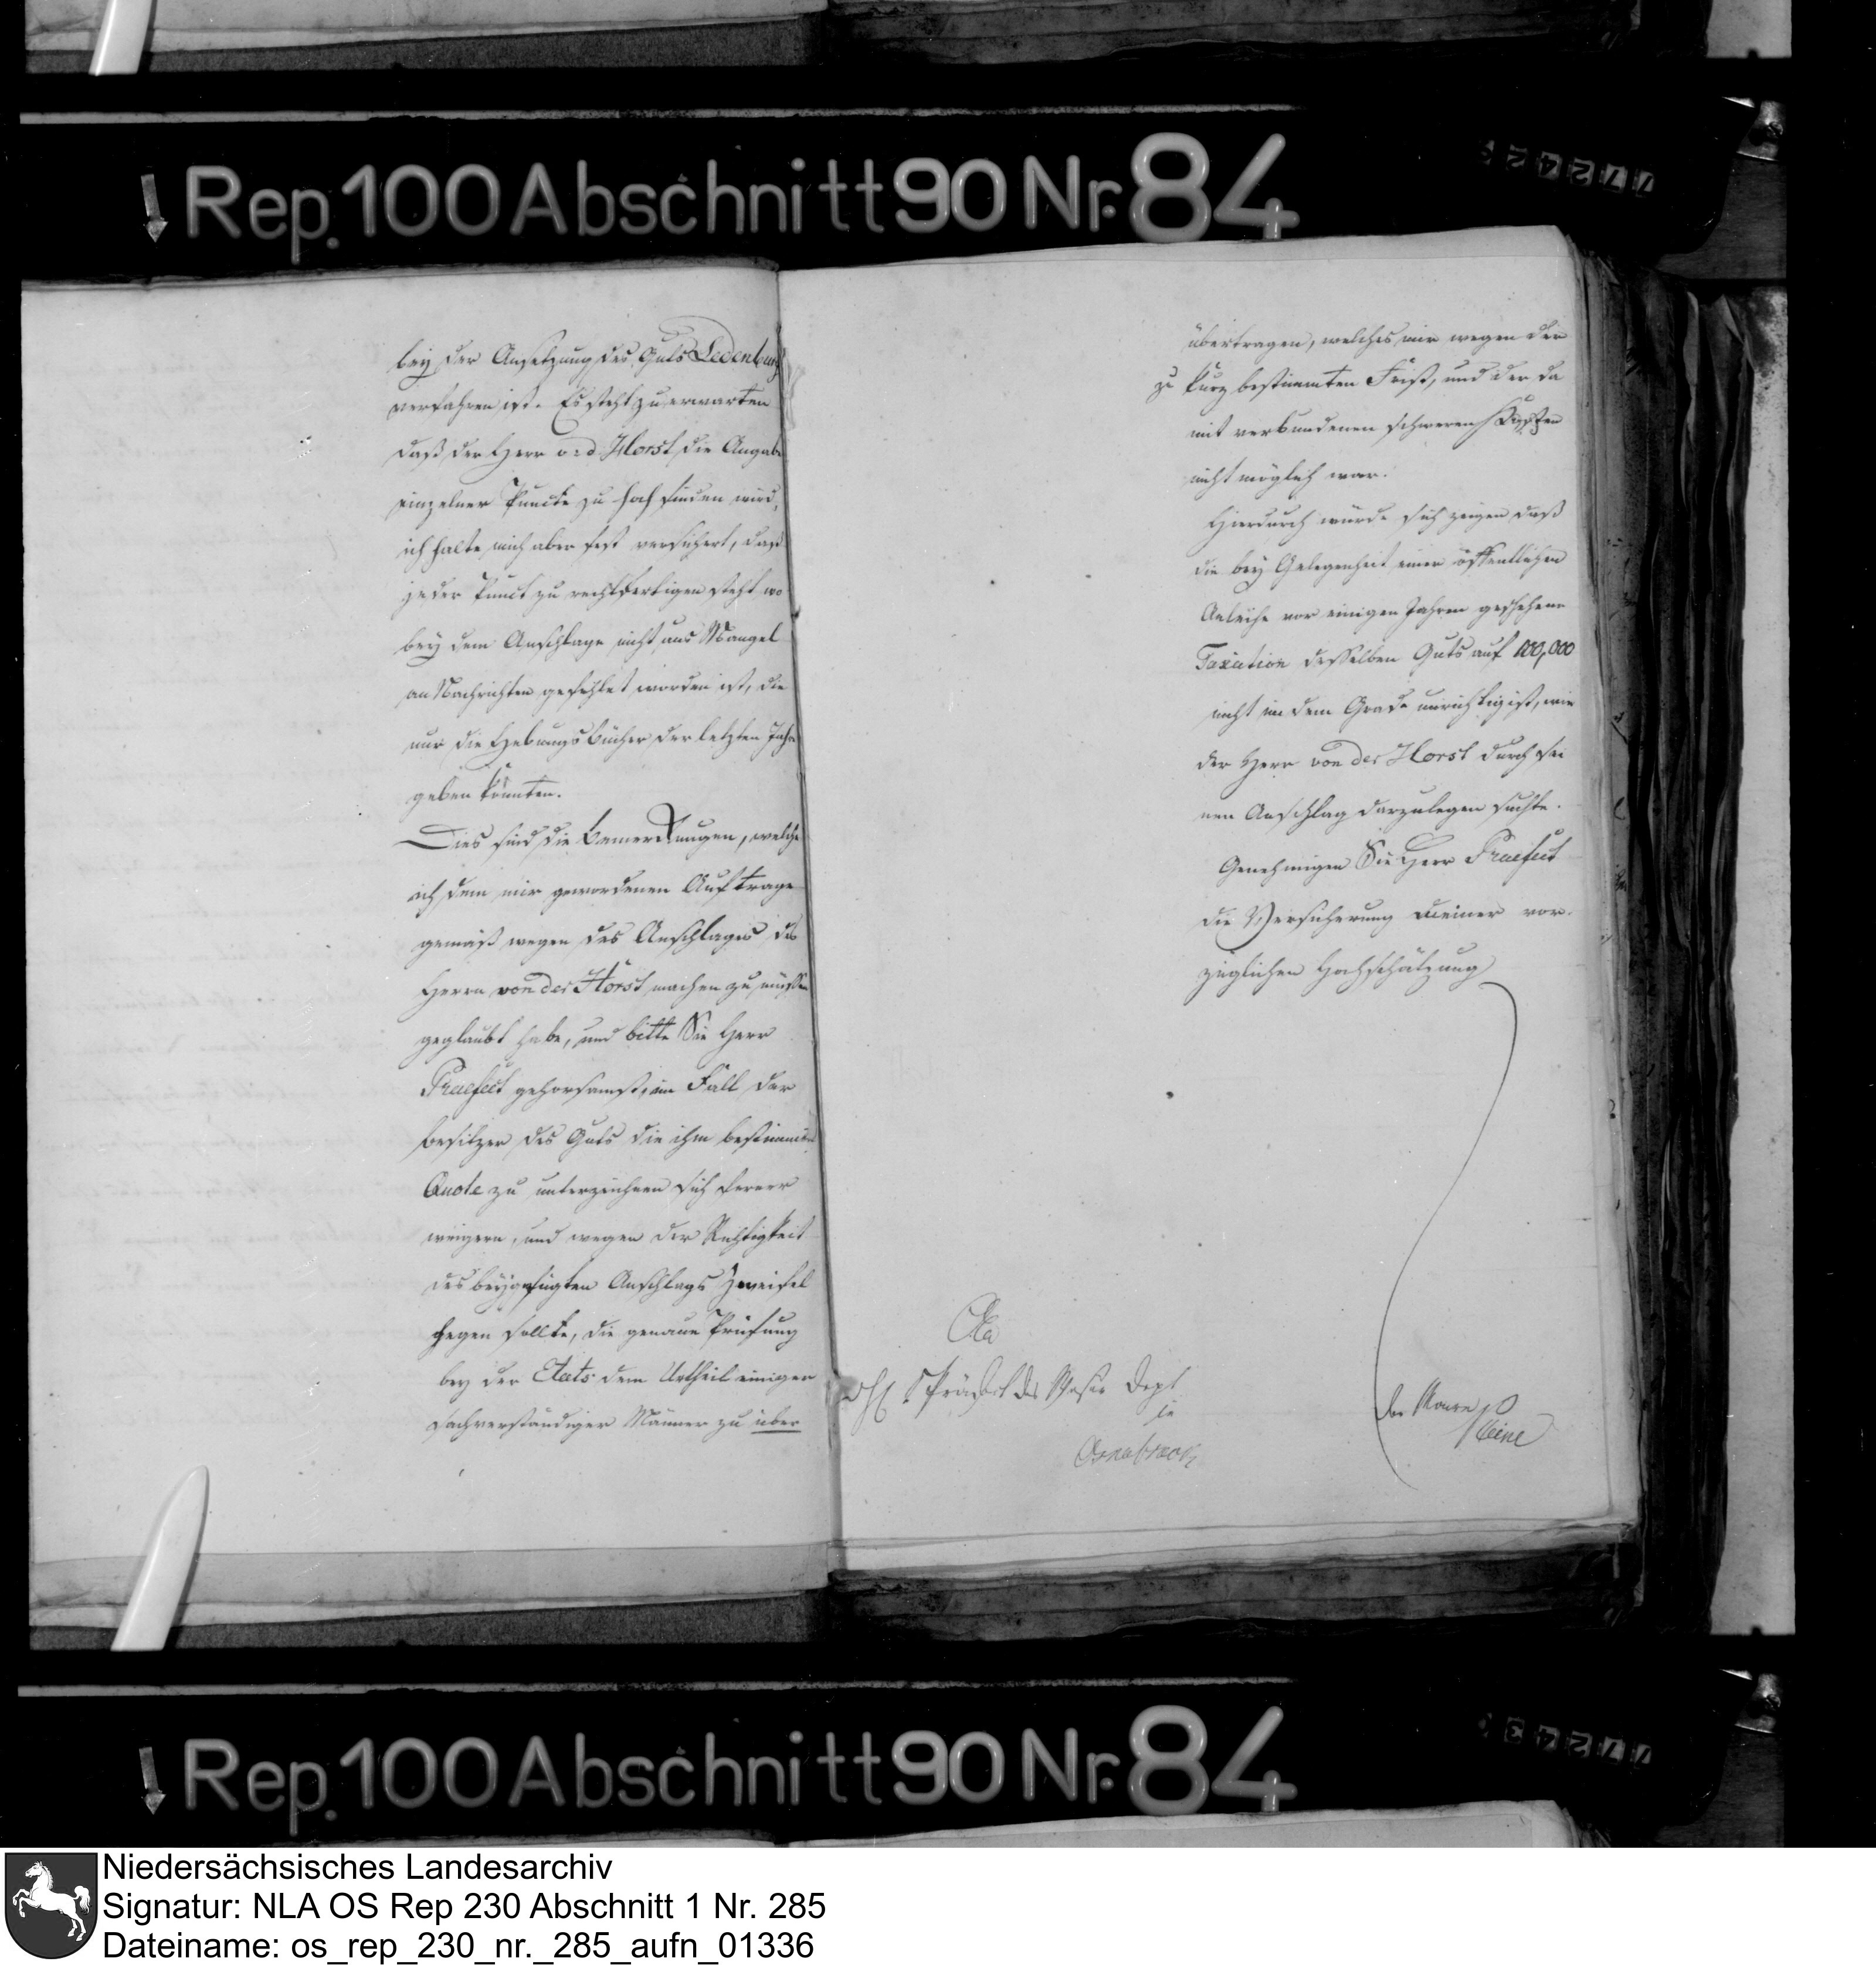 Rep. 100 Abschnitt 90 Nr. 84
bey der Ansetzung des Guts Ledenburg
verfahren ist. Es steht zu erwarten
daß der Herr v. d. Horst die Angabe
einzelner Puncte zu hoch finden wird,
ich halte mich aber fest versichert, daß
jeder Punct zu rechtfertigen steht wo
bey dem Anschlage nicht aus Mangel
an Nachrichten gefehlet worden ist, die
nur die Hebungsbücher der letzten Jahre
geben könnten.
Dies sind die Bemerkungen, welche
ich dem mir gewordenen Auftrage
gemäß wegen des Anschlages des
Herrn von der Horst machen zu müssen
geglaubt habe, und bitte Sie Herr
Praefect gehorsamst, im Fall der
Besitzer des Guts die ihm bestimmte
Quote zu unterzeichnen sich ferner
weigern, und wegen der Richtigkeit
des beygefügten Anschlags Zweifel
hegen sollte, die genaue Prüfung
bey der Etats dem Urtheil einiger
sachverständiger Männer zu über
übertragen, welches mir wegen der
zu kurz bestimmten Frist, und der da
mit verbundenen schweren Kosten
nicht möglich war.
Hierdurch würde sich zeigen daß
die bey Gelegenheit einer öffentlichen
Anleihe vor einigen Jahren geschehene
Taxation desselben Guts auf 100,000
nicht in dem Grade unrichtig ist, wie
der Herr von der Horst durch sei
nen Anschlag darzulegen suchte.
Genehmigen Sie Herr Praefect
die Versicherung meiner vor
züglichen Hochschätzung
An
H. Präfect des Weser Dept
in
Osnabrück
Der Maire
Rep. 100 Abschnitt 90 Nr. 84
Niedersächsisches Landesarchiv
Signatur: NLA OS Rep 230 Abschnitt 1 Nr. 285
Dateiname: os_rep_230_nr._285_aufn_01336